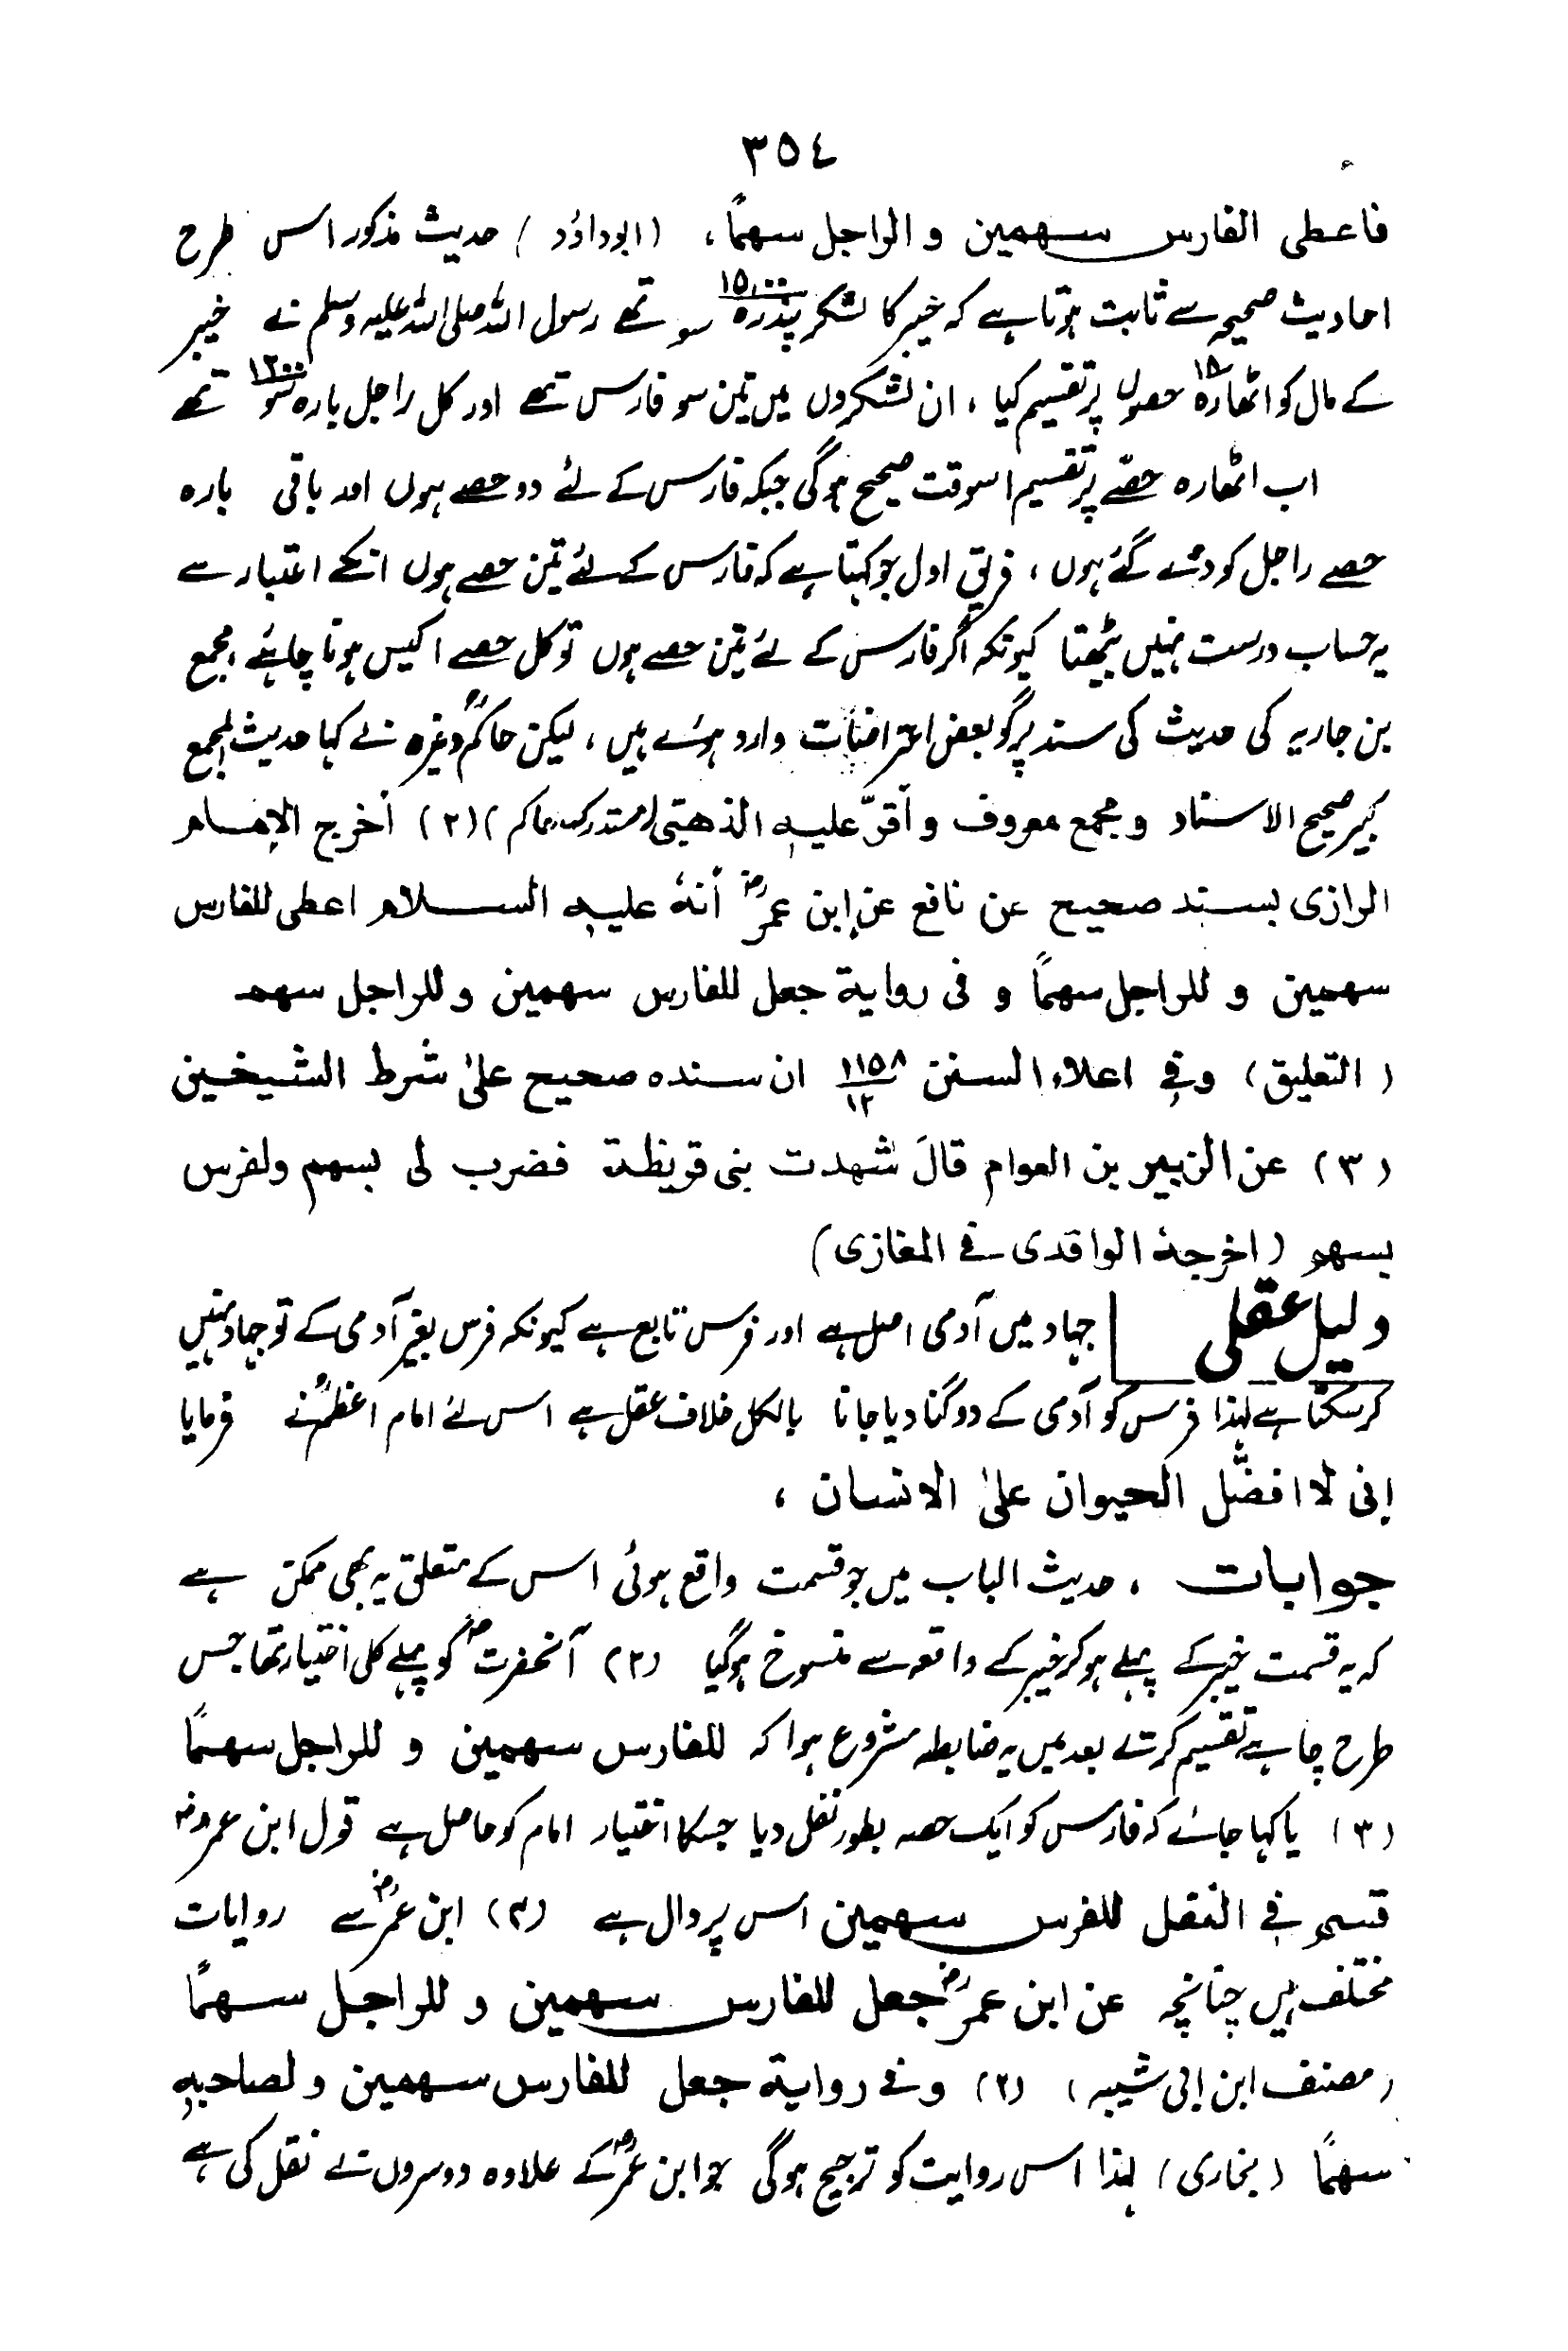 ٣٥٤
فاعطی الفارس سهمین و الراجل سهمًا، (ابوداؤد) حدیث مذکور اس طرح
احادیث صحیحہ سے ثابت ہوتا ہے کہ خیبر کا لشکر پندرہ ١٥٠٠ سو تھے رسول اللہ صلی اللہ علیہ وسلم نے خیبر
کے مال کو اٹھارہ ١٨ حصوں پر تقسیم کیا ، ان لشکروں میں تین سو فارس تھے اور کل راجل بارہ سو ١٢٠٠ تھے
اب اٹھارہ حصّے پر تقسیم اسوقت صحیح ہوگی جبکہ فارس کے لئے دو حصے ہوں اور باقی بارہ
حصے راجل کو دئے گئے ہوں ، فریق اول جو کہتا ہے کہ فارس کے لئے تین حصے ہوں انکے اعتبار سے
یہ حساب درست نہیں بیٹھتا کیونکہ اگر فارس کے لئے تین حصے ہوں تو کل حصے اکیس ہونا چاہئے ، مجمع
بن جاریہ کی حدیث کی سند پر گو بعض اعتراضات وارد ہوئے ہیں ، لیکن حاکمؒ وغیرہ نے کہا حدیث المجمع
کبیر صحیح الاسناد و مجمع معروف و أقرّ علیہ الذهبی (مستدرک حاکم) (٢) أخرج الإمام
الرازی بسند صحیح عن نافع عن إبن عمرؓ أنہٗ علیہ السلام اعطی للفارس
سهمین و للراجل سهمًا و فی روایة جعل للفارس سهمین و للراجل سهم
(التعلیق) وفی اعلاء السنن ١١٥٨/١٢ ان سندہ صحیح علیٰ شرط الشیخین
(٣) عن الزبیر بن العوام قالَ شهدت بنی قریظة فضرب لی بسهم ولفرس
بسهم (اخرجہٗ الواقدی فی المغازی)
دلیل عقلی جہاد میں آدمی اصل ہے اور فرس تابع ہے کیونکہ فرس بغیر آدمی کے تو جہاد نہیں
کر سکتا ہے لہذا فرس کو آدمی کے دوگنا دیا جانا بالکل خلاف عقل ہے اس لئے امام اعظمؒ نے فرمایا
إنی لا افضّل الحیوان علیٰ الانسان ،
جوابات ، حدیث الباب میں جو قسمت واقع ہوئی اس کے متعلق یہ بھی ممکن ہے
کہ یہ قسمت خیبر کے پہلے ہو کر خیبر کے واقعہ سے منسوخ ہوگیا (٢) آنحضرتؐ کو پہلے کلی اختیار تھا جس
طرح چاہے تقسیم کرتے بعد میں یہ ضابطہ مشروع ہوا کہ للفارس سهمین و للراجل سهمًا
(٣) یا کہا جائے کہ فارس کو ایک حصہ بطور نفل دیا جسکا اختیار امام کو حاصل ہے قول ابن عمرؓ
قسم فی النفل للفرس سهمین اس پر دال ہے (٤) ابن عمرؓ سے روایات
مختلف ہیں چنانچہ عن ابن عمرؓ جعل للفارس سهمین و للراجل سهمًا
(مصنف ابن ابی شیبہ) (٢) و فی روایة جعل للفارس سهمین و لصاحبہٖ
سهمًا (بخاری) لہذا اس روایت کو ترجیح ہوگی جو ابن عمرؓ کے علاوہ دوسروں نے نقل کی ہے